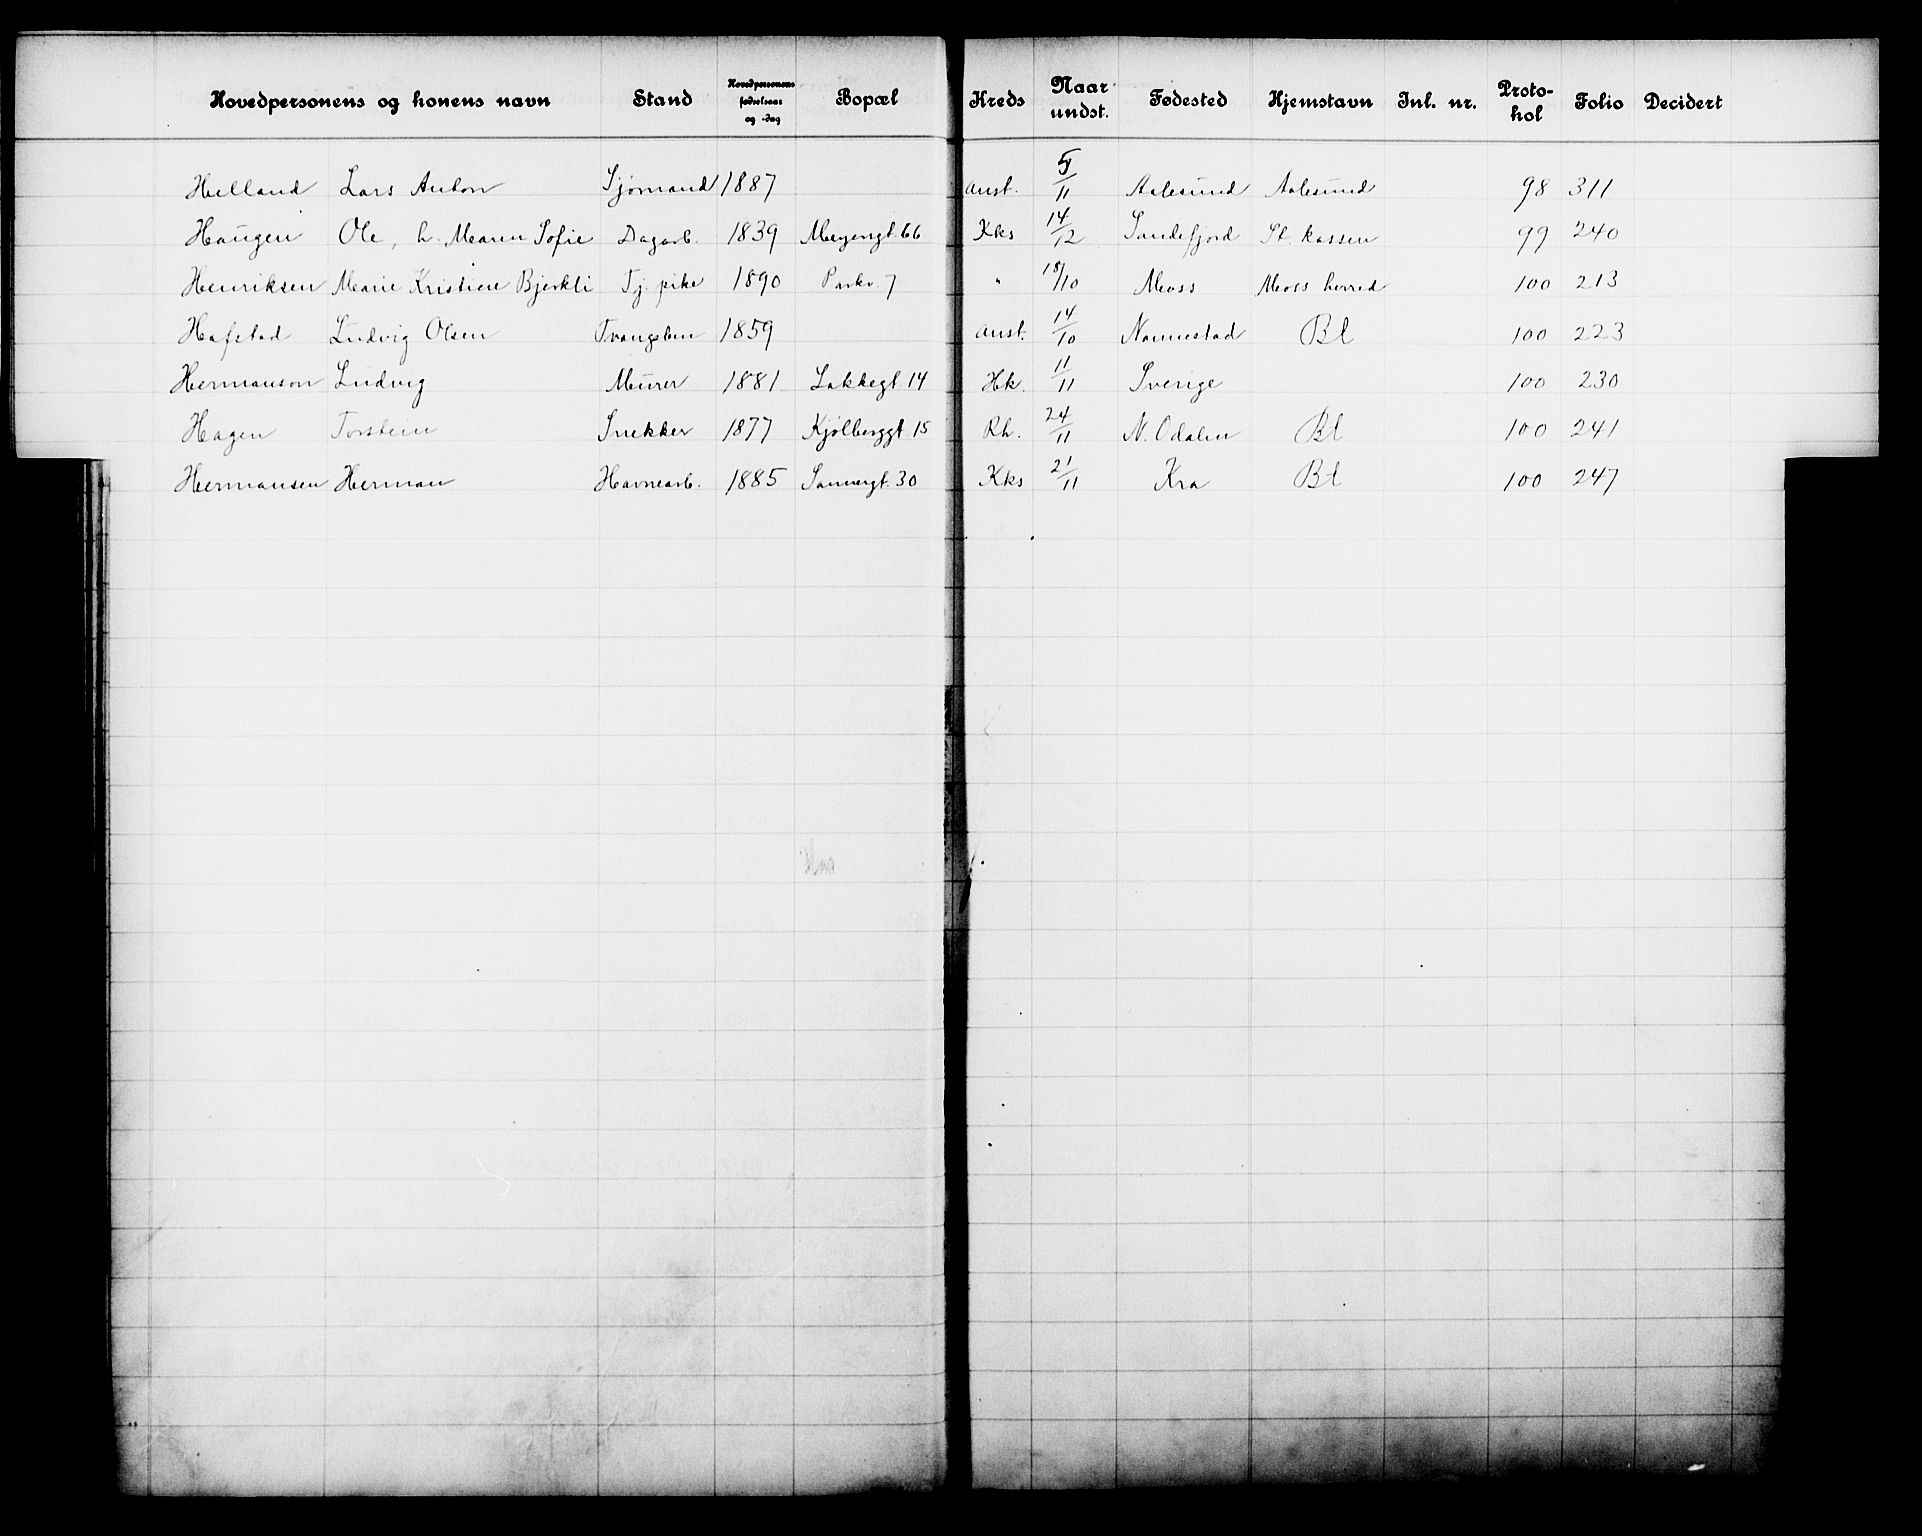 Hovedpersonens og konens navn Stand Hovedpersonens fødselsaar og -dag Bopæl Kreds Naar undst. Fødested Hjemstavn Inl. nr. Protokol Folio Decidert
Helland Lars Anton Sjømand 1887 Anst. 5/11 Aalesund Aalesund 98 311
Haugen Ole, h. Maren Sofie Dagarb. 1839 Meyengt 66 Kks 14/12 Sandefjord St. kassen 99 240
Henriksen Marie Kristine Bjerkli Tj. pike 1890 Parkv. 7 " 18/10 Moss Moss herred 100 213
Hafstad Ludvig Olsen Tvangslem 1859 Anst. 14/10 Nannestad Bl 100 223
Hermanson Ludvig Murer 1881 Lakkegt. 14 Hk. 11/11 Sverige 100 230
Hagen Torstein Snekker 1877 Kjølberggt 15 Rh. 24/11 N. Odalen Bl 100 241
Hermansen Herman Havnearb. 1885 Sannergt. 30 Kks 21/11 Kra Bl 100 247